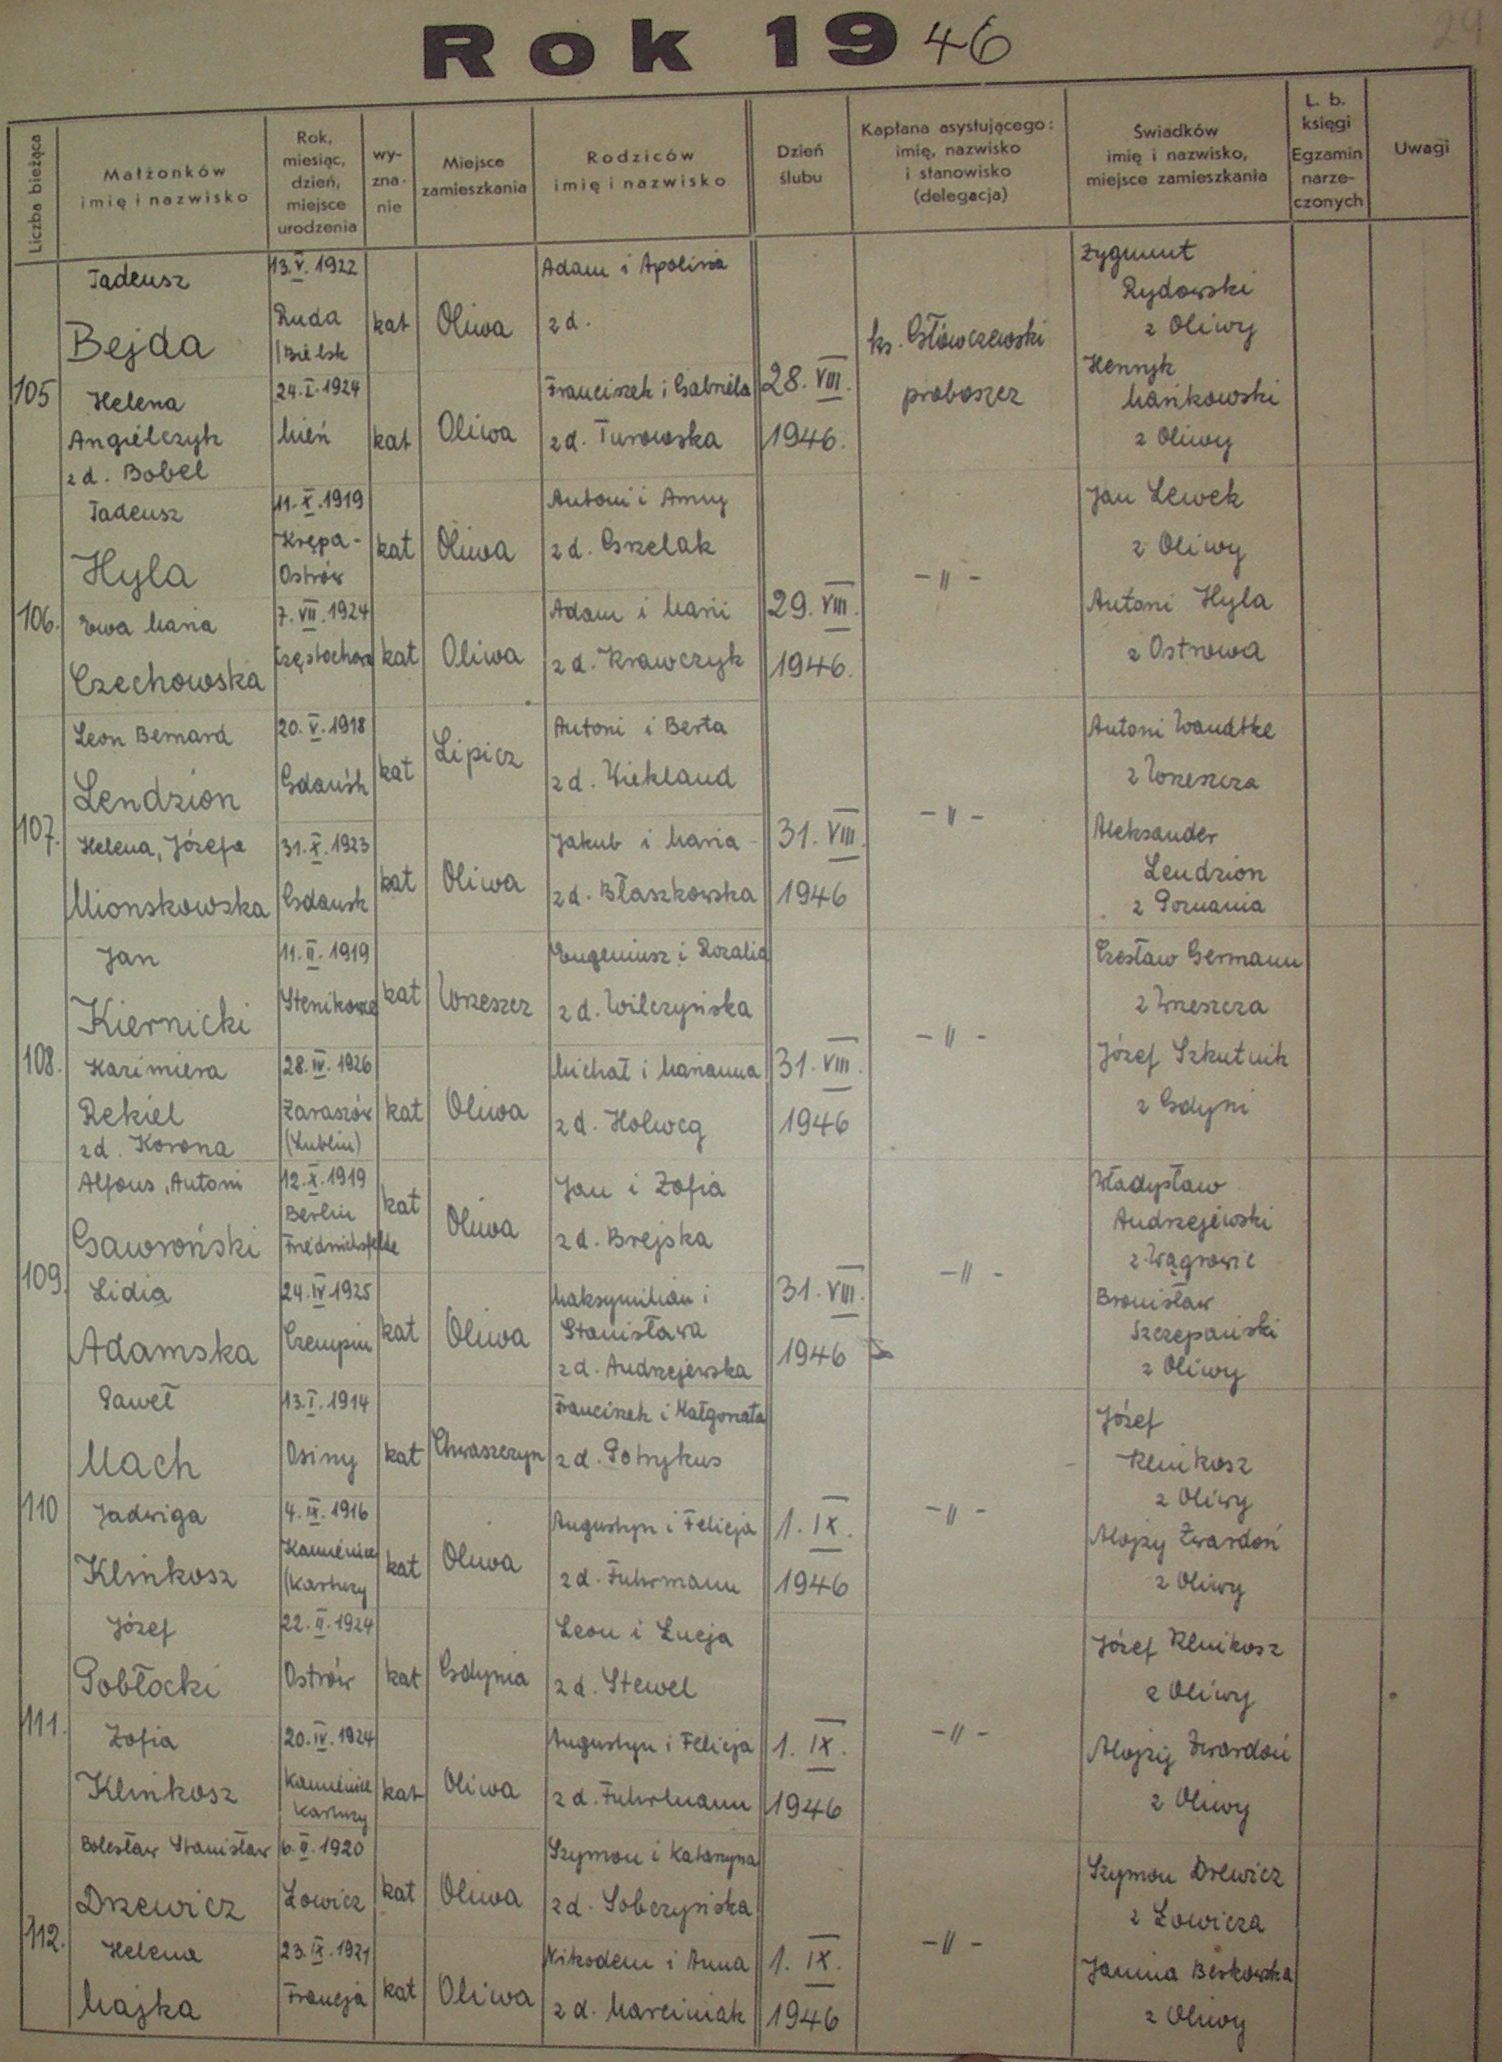 Rok 1946
29
Liczba bieżąca
Małżonków
imię i nazwisko
Rok,
miesiąc,
dzień,
miejsce
urodzenia
wy-
zna-
nie
Miejsce
zamieszkania
Rodziców
imię i nazwisko
Dzień
ślubu
Kapłana asystującego:
imię, nazwisko
i stanowisko
(delegacja)
Świadków
imię i nazwisko,
miejsce zamieszkania
L. b.
księgi
Egzamin
narze-
czonych
Uwagi
105
Tadeusz
Bejda
13.V.1922
Ruda
(Bielsk
kat
Oliwa
Adam i Apolina
z d.
Helena
Angielczyk
z d. Bobel
24.I.1924
Mień
kat
Oliwa
Franciszek i Gabriela
z d. Turowska
28.VIII.
1946.
ks. Główczewski
proboszcz
Zygmunt
Rydowski
z Oliwy
Henryk
Mańkowski
z Oliwy
106.
Tadeusz
Hyla
11.X.1919
Krępa-
Ostrów
kat
Oliwa
Antoni i Anny
z d. Grzelak
Ewa Maria
Czechowska
7.VII.1924
Częstochowa
kat
Oliwa
Adam i Marii
z d. Krawczyk
29.VIII.
1946.
-"-
Jan Lewek
z Oliwy
Antoni Hyla
z Ostrowa
107.
Leon Bernard
Lendzion
20.V.1918
Gdańsk
kat
Lipicz
Antoni i Berta
z d. Wiekland
Helena, Józefa
Mionskowska
31.X.1923
Gdansk
kat
Oliwa
Jakub i Maria
z d. Błaszkowska
31.VIII.
1946
-"-
Antoni Wandtke
z Wrzeszcza
Aleksander
Lendzion
z Poznania
108.
Jan
Kiernicki
11.II.1919
kat
Wrzeszcz
Eugeniusz i Rozalia
z d. Wilczyńska
Kazimiera
Rekiel
z d. Korona
28.IV.1926
Zaraszów
(Lublin)
kat
Oliwa
Michał i Marianna
z d.
31.VIII.
1946
-"-
Czesław Germann
z Wrzeszcza
Józef Szkutnik
z Gdyni
109.
Alfons, Antoni
Gawroński
12.X.1919
Berlin
Friedrichsfelde
kat
Oliwa
Jan i Zofia
z d. Brejska
Lidia
Adamska
24.IV.1925
Czempin
kat
Oliwa
Maksymilian i
Stanisława
z d. Andrzejewska
31.VIII.
1946
-"-
Władysław
Andrzejewski
z Wągrowic
Bronisław
Szczepański
z Oliwy
110
Paweł
Mach
13.I.1914
Osiny
kat
Chwaszczyn
Franciszek i Małgorzata
z d. Potrykus
Jadwiga
Klinkosz
4.IX.1916
Kamienice
(Kartuzy
kat
Oliwa
Augustyn i Felicja
z d. Fuhrmann
1.IX.
1946
-"-
Józef
Klinkosz
z Oliwy
Alojzy Zwardoń
z Oliwy
111.
Józef
Pobłocki
22.II.1924
Ostrów
kat
Gdynia
Leon i Łucja
z d. Stewel
Zofia
Klinkosz
20.IV.1924
Kamienice
Kartuzy
kat
Oliwa
Augustyn i Felicja
z d. Fuhrmann
1.IX.
1946
-"-
Józef Klinkosz
z Oliwy
Alojzy Zwardoń
z Oliwy
112.
Bolesław Stanisław
Drzewicz
6.II.1920
Łowicz
kat
Oliwa
Szymon i Katarzyna
z d. Sobczyńska
Helena
Majka
23.IX.1921
Francja
kat
Oliwa
Nikodem i Anna
z d. Marciniak
1.IX.
1946
-"-
Szymon Drewicz
z Łowicza
Janina Berkowska
z Oliwy